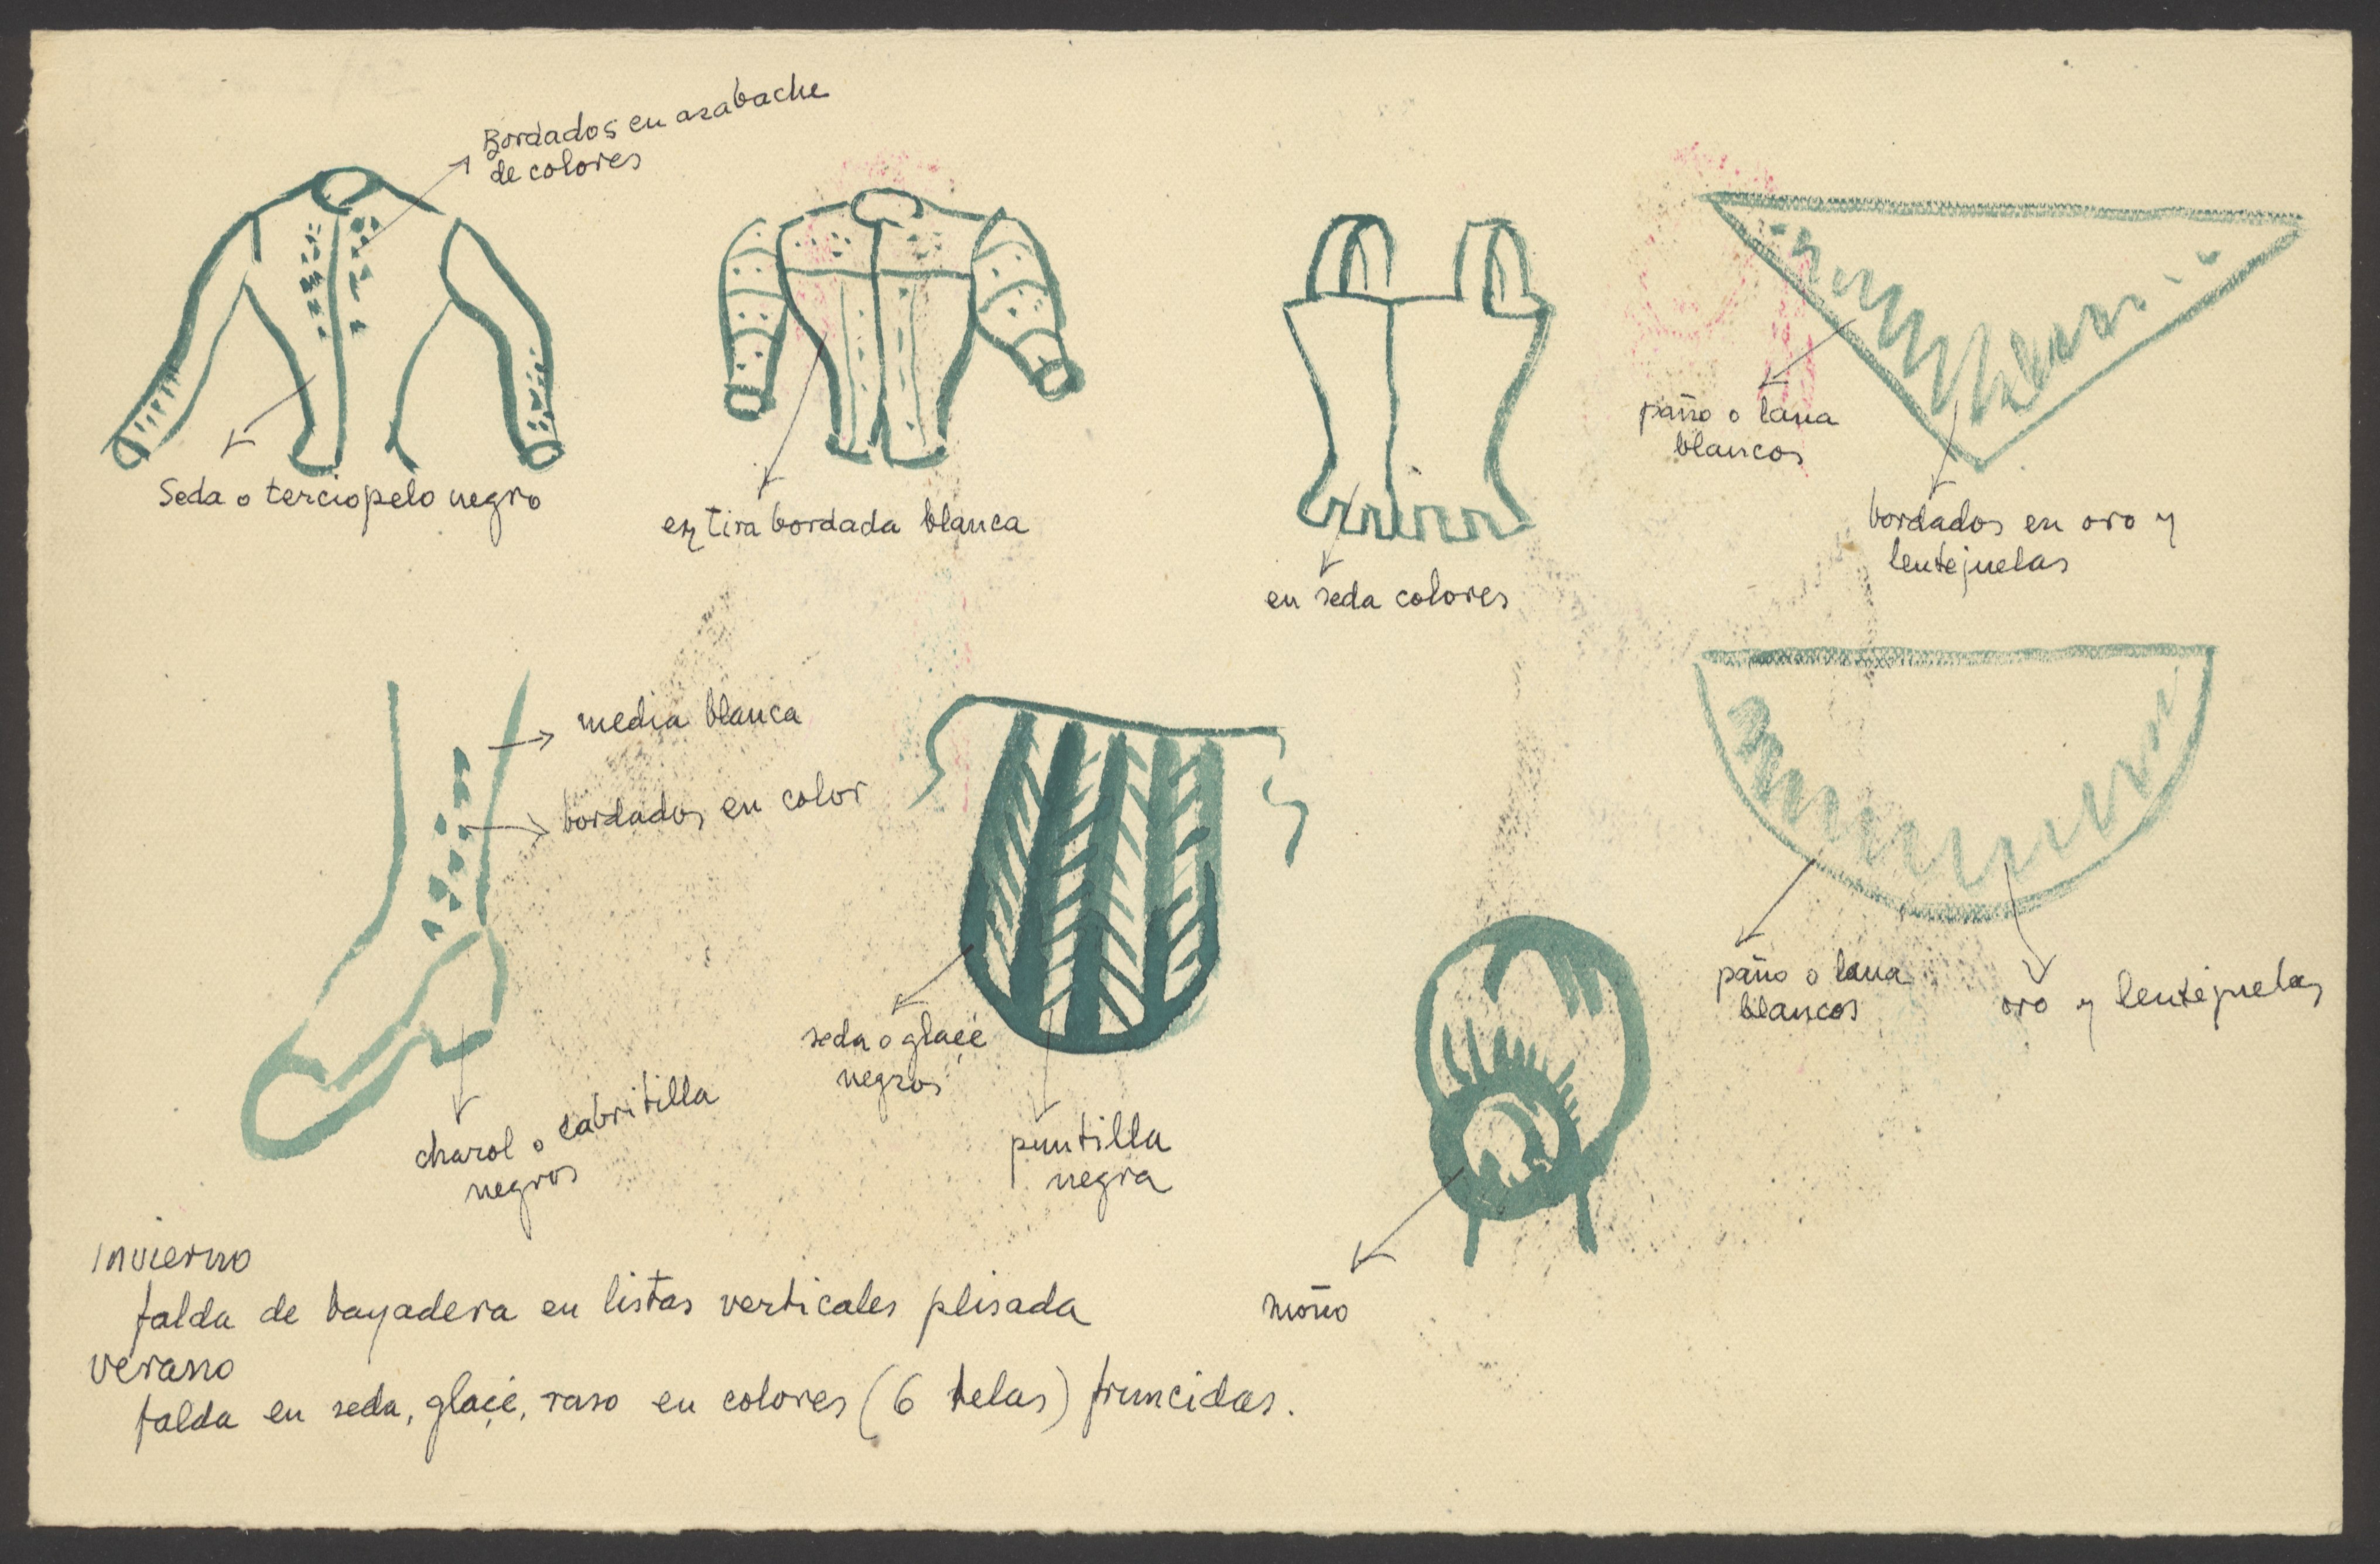 Bordados en azabache
de colores
Seda o terciopelo negro
en tira bordada blanca
en seda colores
paño o lana
blancos
bordados en oro y
lentejuelas
media blanca
bordados en color
charol o cabritilla
negros
seda o glacé
negros
puntilla
negra
moño
paño o lana
blancos
oro y lentejuelas
invierno
falda de bayadera en listas verticales plisada
verano
falda en seda, glacé, raso en colores (6 telas) fruncidas.